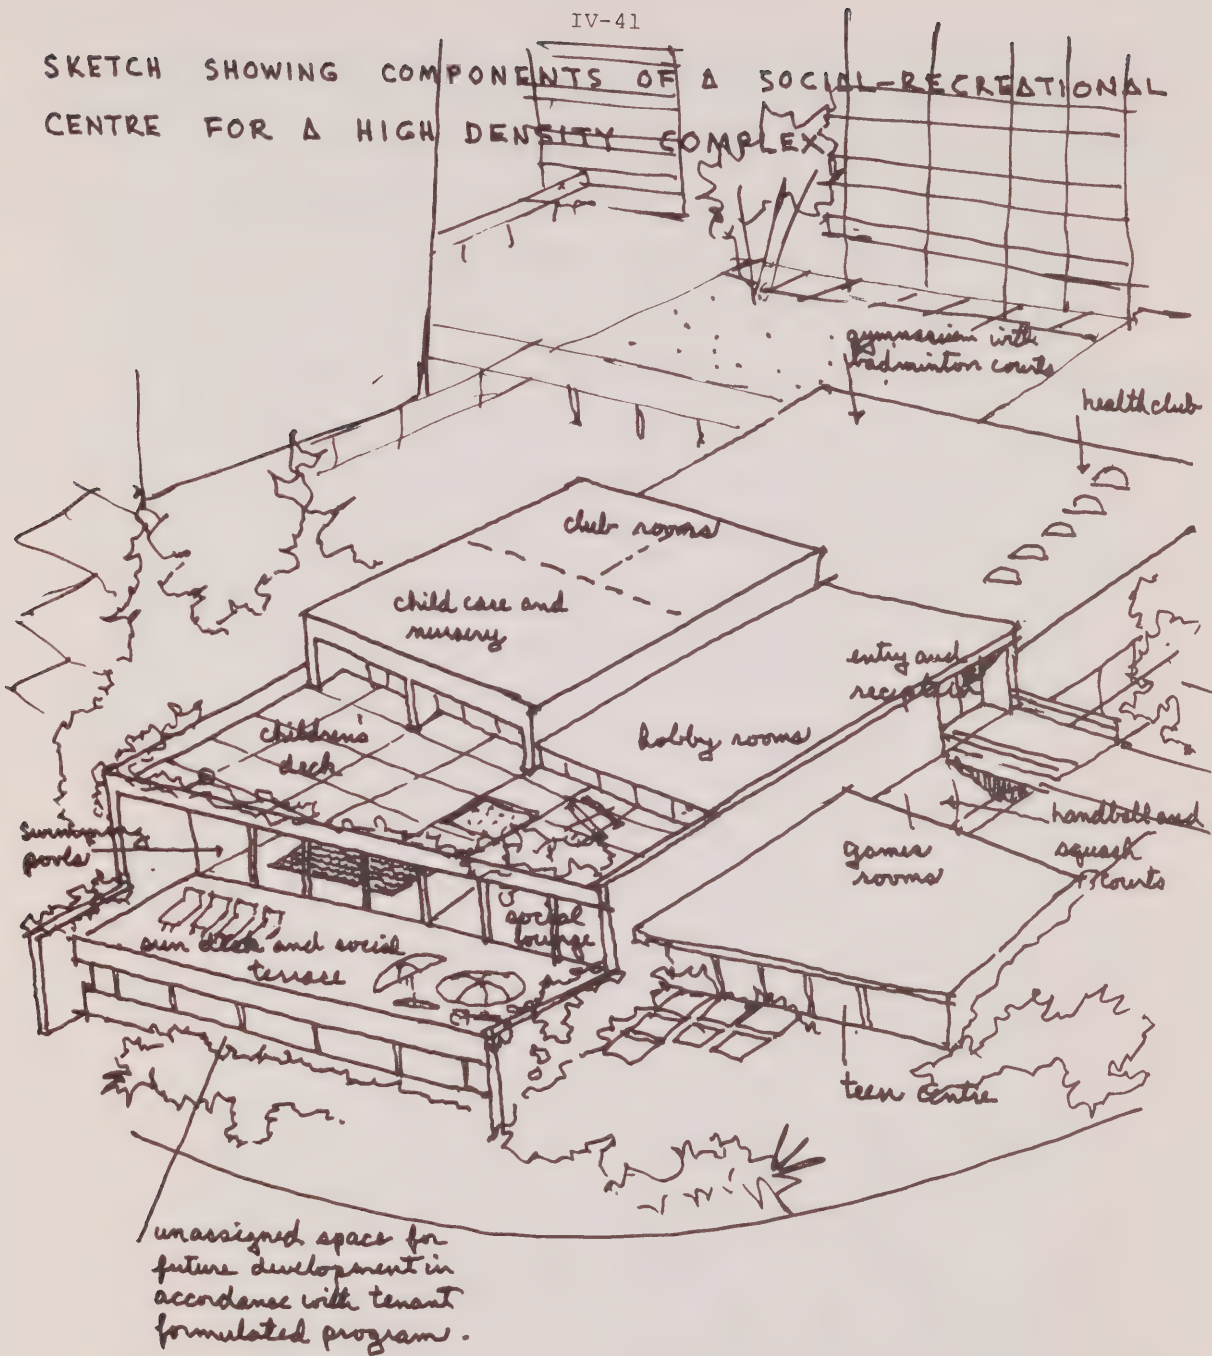 IV-41
SKETCH SHOWING COMPONENTS OF A SOCIAL-RECREATIONAL
CENTRE FOR A HIGH DENSITY COMPLEX
gymnasium with
badminton courts
health club
club rooms
child care and
nursery
entry and
reception
children's
deck
hobby rooms
swimming
pools
handball and
squash
courts
games
rooms
social
lounge
sun deck and social
terrace
teen centre
unassigned space for
future development in
accordance with tenant
formulated program.